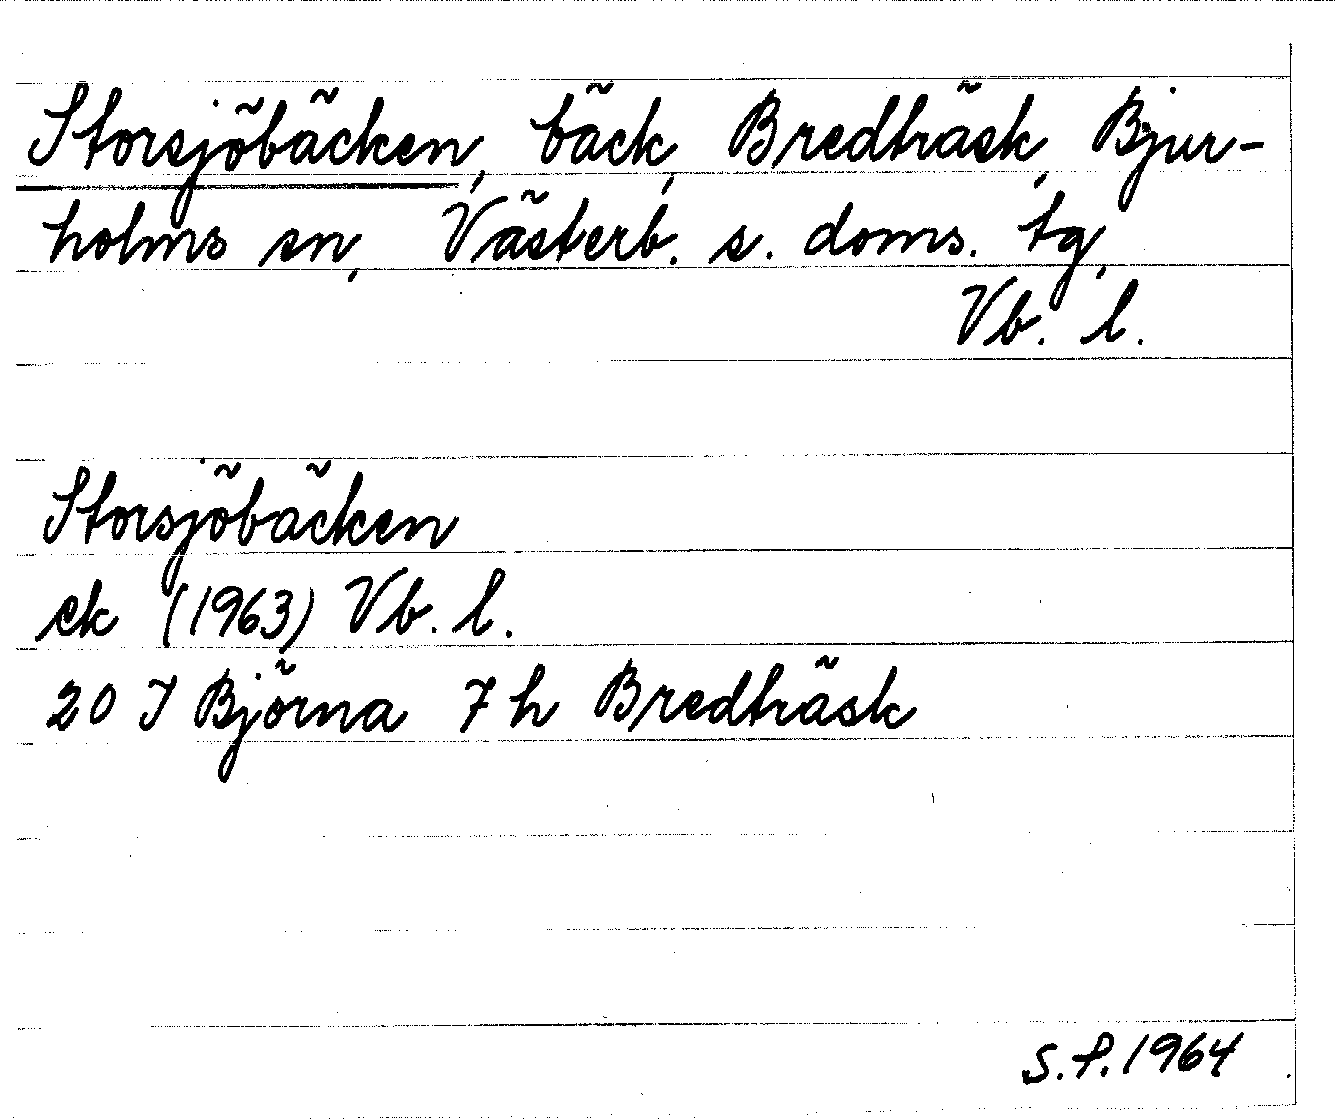 Storsjöbäcken, bäck, Bredträsk, Bjur-
holms sn, Västerb. s. doms. tg,
Vb. l.
Storsjöbäcken
ek (1963) Vb. l.
20 J Björna 7 h Bredträsk
S.P. 1964